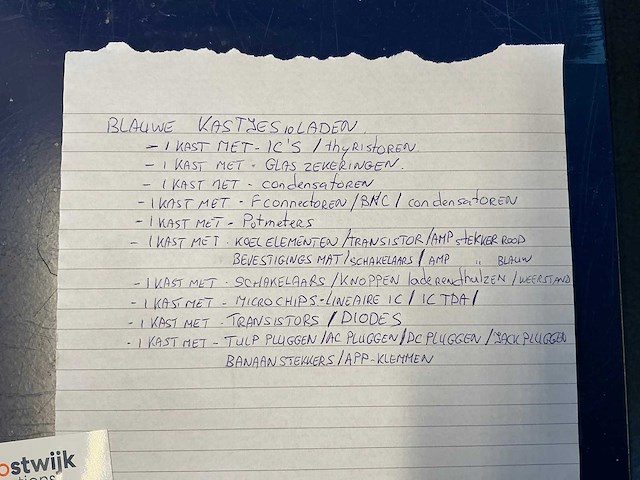 BLAUWE KASTJES 10 LADEN.
- 1 KAST MET - IC'S / thyRISTOREN.
- 1 KAST MET - GLAS ZEKERINGEN.
- 1 KAST MET - condensatoren
- 1 KAST MET - Fconnectoren / BNC / condensatoren
- 1 KAST MET - Potmeters
- 1 KAST MET - KOELELEMENTEN / TRANSISTOR / AMP stekker ROOD
BEVESTIGINGS MAT / SCHAKELAARS / AMP " BLAUW
- 1 KAST MET - SCHAKELAARS / KNOPPEN laderendhulzen / WEERSTAND
- 1 KAST MET - MICROCHIPS - LINEAIRE IC / IC TDA /
- 1 KAST MET - TRANSISTORS / DIODES
- 1 KAST MET - TULP PLUGGEN / AC PLUGGEN / DC PLUGGEN / JACK PLUGGEN
BANAANSTEKKERS / APP-KLEMMEN
ostwijk
tions